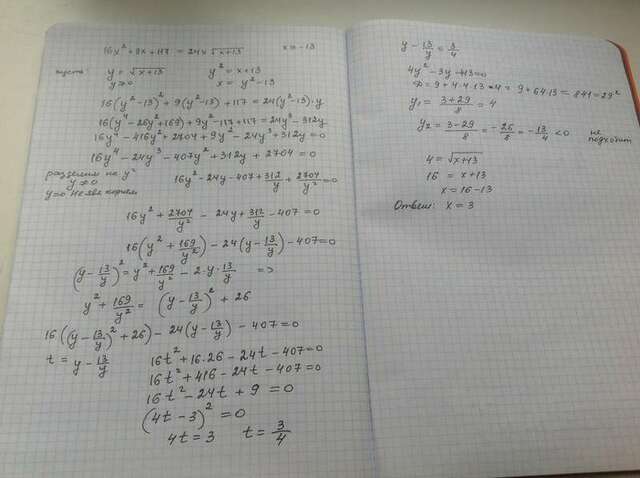 16x² + 9x + 117 = 24x√(x+13)   x = -13
пусть: y = √(x+13)   y² = x+13
y ≥ 0   x = y² - 13
16(y²-13)² + 9(y²-13) + 117 = 24(y²-13)·y
16(y⁴ - 26y² + 169) + 9y² - 117 + 117 = 24y³ - 312y
16y⁴ - 416y² + 2704 + 9y² - 24y³ + 312y = 0
16y⁴ - 24y³ - 407y² + 312y + 2704 = 0
разделим на y²
y ≠ 0   16y² - 24y - 407 + 312/y + 2704/y² = 0
y=0 не явл корнем
16y² + 2704/y² - 24y + 312/y - 407 = 0
16(y² + 169/y²) - 24(y - 13/y) - 407 = 0
(y - 13/y)² = y² + 169/y² - 2·y·13/y =>
y² + 169/y² = (y - 13/y)² + 26
16((y - 13/y)² + 26) - 24(y - 13/y) - 407 = 0
t = y - 13/y   16t² + 16·26 - 24t - 407 = 0
16t² + 416 - 24t - 407 = 0
16t² - 24t + 9 = 0
(4t - 3)² = 0
4t = 3   t = 3/4
y - 13/y = 3/4
4y² - 3y - 4·13 = 0
D = 9 + 4·4·13·4 = 9 + 64·13 = 841 = 29²
y₁ = (3+29)/8 = 4
y₂ = (3-29)/8 = -26/8 = -13/4 < 0   не подходит
4 = √(x+13)
16 = x+13
x = 16-13
Ответ: x = 3